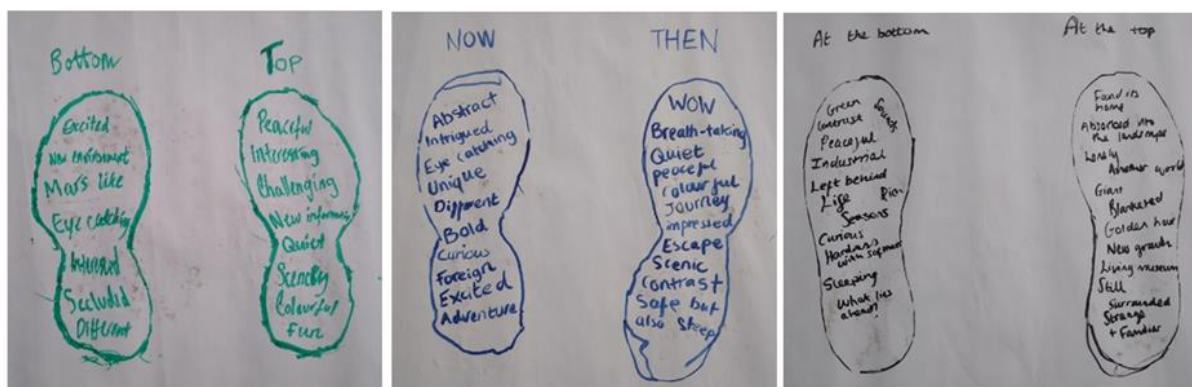 Bottom
Excited
New environment
Mars like
Eye catching
Interested
Secluded
Different
Top
Peaceful
Interesting
Challenging
New information
Quiet
Scenery
Colourful
Fun
NOW
Abstract
Intrigued
Eye catching
Unique
Different
Bold
Curious
Foreign
Excited
Adventure
THEN
WOW
Breath-taking
Quiet
peaceful
colourful
Journey
impressed
Escape
Scenic
Contrast
Safe but
also steep
At the bottom
Green Sounds
Contrast
Peaceful
Industrial
Left behind
Life
Seasons
Curious
Hardness
with softness
Sleeping
What lies
ahead?
At the top
Found its
home
Absorbed into
the landscape
Lonely
Another world
Giant
Blanketed
Golden hour
New growth
Living museum
Still
Surrounded
Strange
+ Familiar